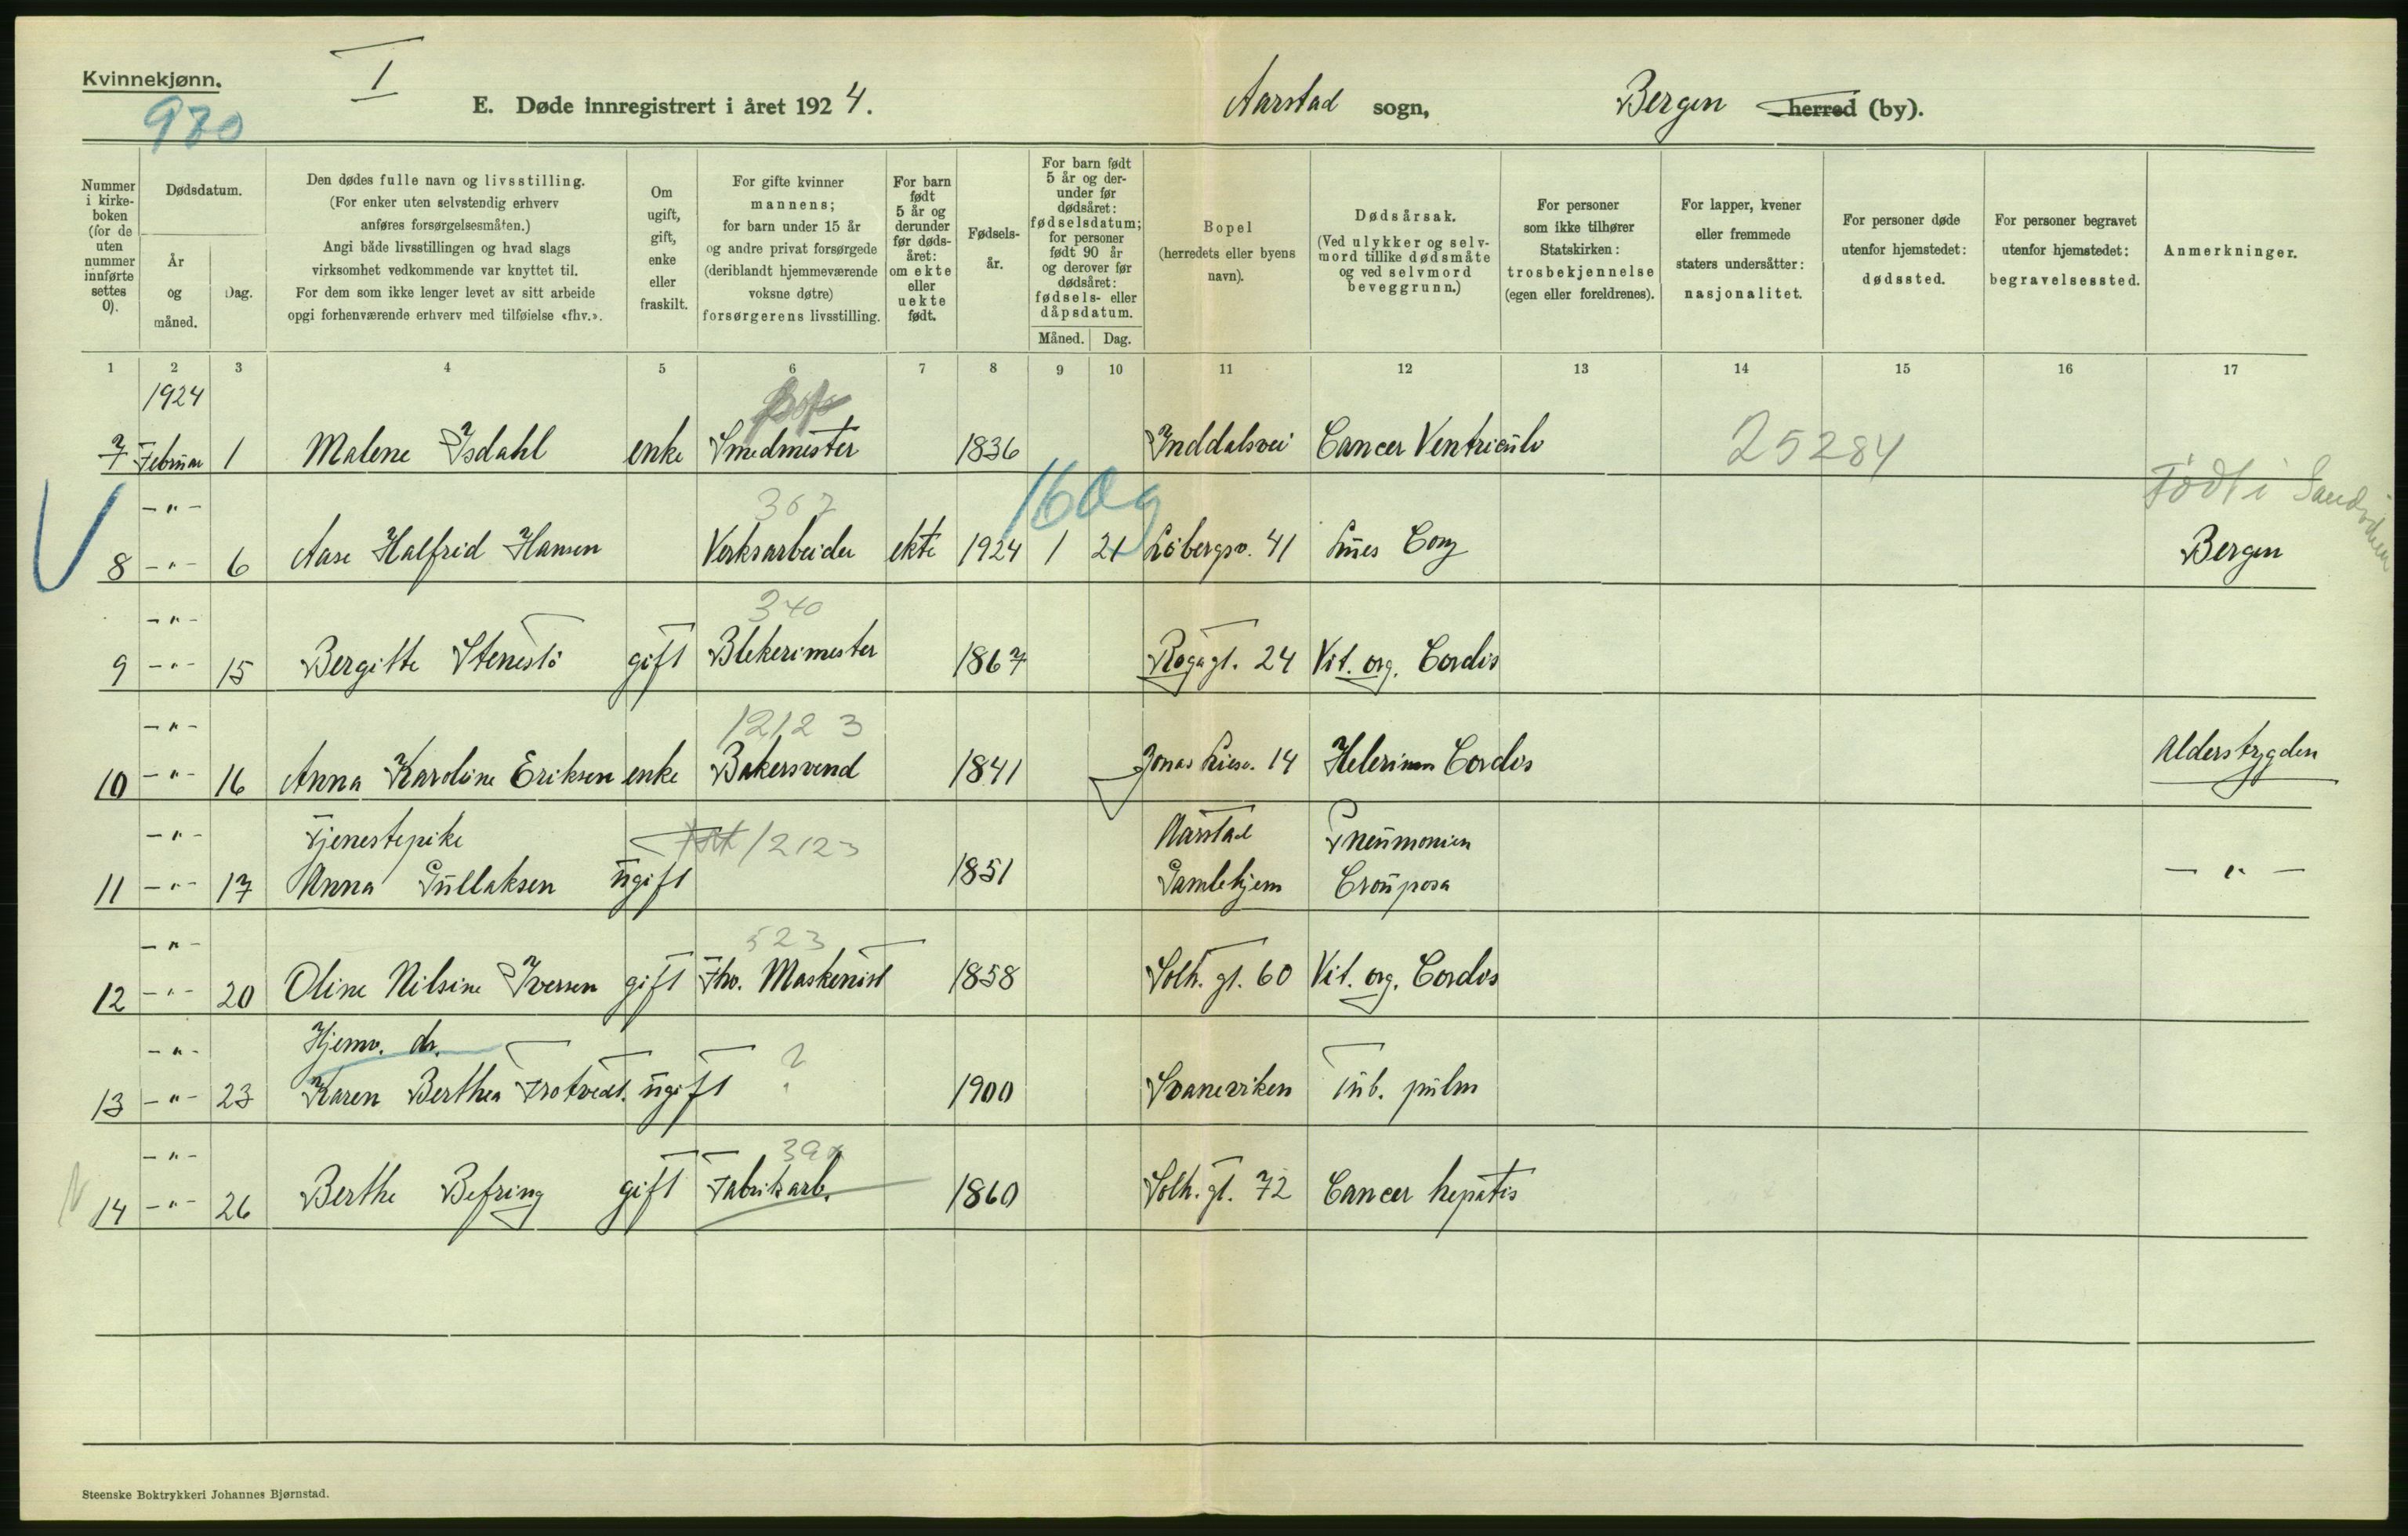 Kvinnekjønn.
I
980
E. Døde innregistrert i året 1924.
Aarstad sogn,
Bergen herred (by).
Nummer i kirke-boken (for de uten nummer innførte settes 0).
Dødsdatum.
År og måned.
Dag.
Den dødes fulle navn og livsstilling.
(For enker uten selvstendig erhverv
anføres forsørgelsesmåten.)
Angi både livsstillingen og hvad slags
virksomhet vedkommende var knyttet til.
For dem som ikke lenger levet av sitt arbeide
opgi forhenværende erhverv med tilføielse «fhv.».
Om ugift, gift, enke eller fraskilt.
For gifte kvinner
mannens;
for barn under 15 år
og andre privat forsørgede
(deriblandt hjemmeværende
voksne døtre)
forsørgerens livsstilling.
For barn født 5 år og derunder før døds-året: om ekte eller uekte født.
Fødsels-år.
For barn født
5 år og der-
under før
dødsåret:
fødselsdatum;
for personer
født 90 år
og derover før
dødsåret:
fødsels- eller
dåpsdatum.
Måned. Dag.
Bopel
(herredets eller byens
navn).
Dødsårsak.
(Ved ulykker og selv-
mord tillike dødsmåte
og ved selvmord
beveggrunn.)
For personer
som ikke tilhører
Statskirken:
trosbekjennelse
(egen eller foreldrenes).
For lapper, kvener
eller fremmede
staters undersåtter:
nasjonalitet.
For personer døde
utenfor hjemstedet:
dødssted.
For personer begravet
utenfor hjemstedet:
begravelsessted.
Anmerkninger.
1 2 3 4 5 6 7 8 9 10 11 12 13 14 15 16 17
1924
7 Februar 1 Malene Isdahl enke Smedmester 1836 Inddalsvei Cancer Ventriculi 25284
-"- 367 160g Født i
8 -"- 6 Aase Halfrid Hansen Verksarbeider ekte 1924 1 21 Løbergsv. 41 Lues Cong Bergen
-"- 340
9 -"- 15 Bergitte Stenestø gift Blekerimester 1867 Rogagt. 24 Vit. org. Cordis
-"- 12123
10 -"- 16 Anna Karoline Eriksen enke Bakersvend 1841 Jonas Liesv. 14 Cordis Alderstrygden
-"- Tjenestepike 12123 Aarstad Pneumonien
11 -"- 17 Anna Gullaksen ugift 1851 Gamlehjem Crouposa -"-
-"- 523
12 -"- 20 Oline Nilsine Iversen gift Fhv. Maskinist 1858 Solh. gt. 60 Vit. org. Cordis
-"- Hjemv. dr. ?
13 -"- 23 Karen Berthea Trotvedt. ugift 1900 Svaneviken Tub. pulm
-"- 39
14 -"- 26 Berthe Befring gift Fabrikarb. 1860 Solh. gt. 72 Cancer hepatis
Steenske Boktrykkeri Johannes Bjørnstad.